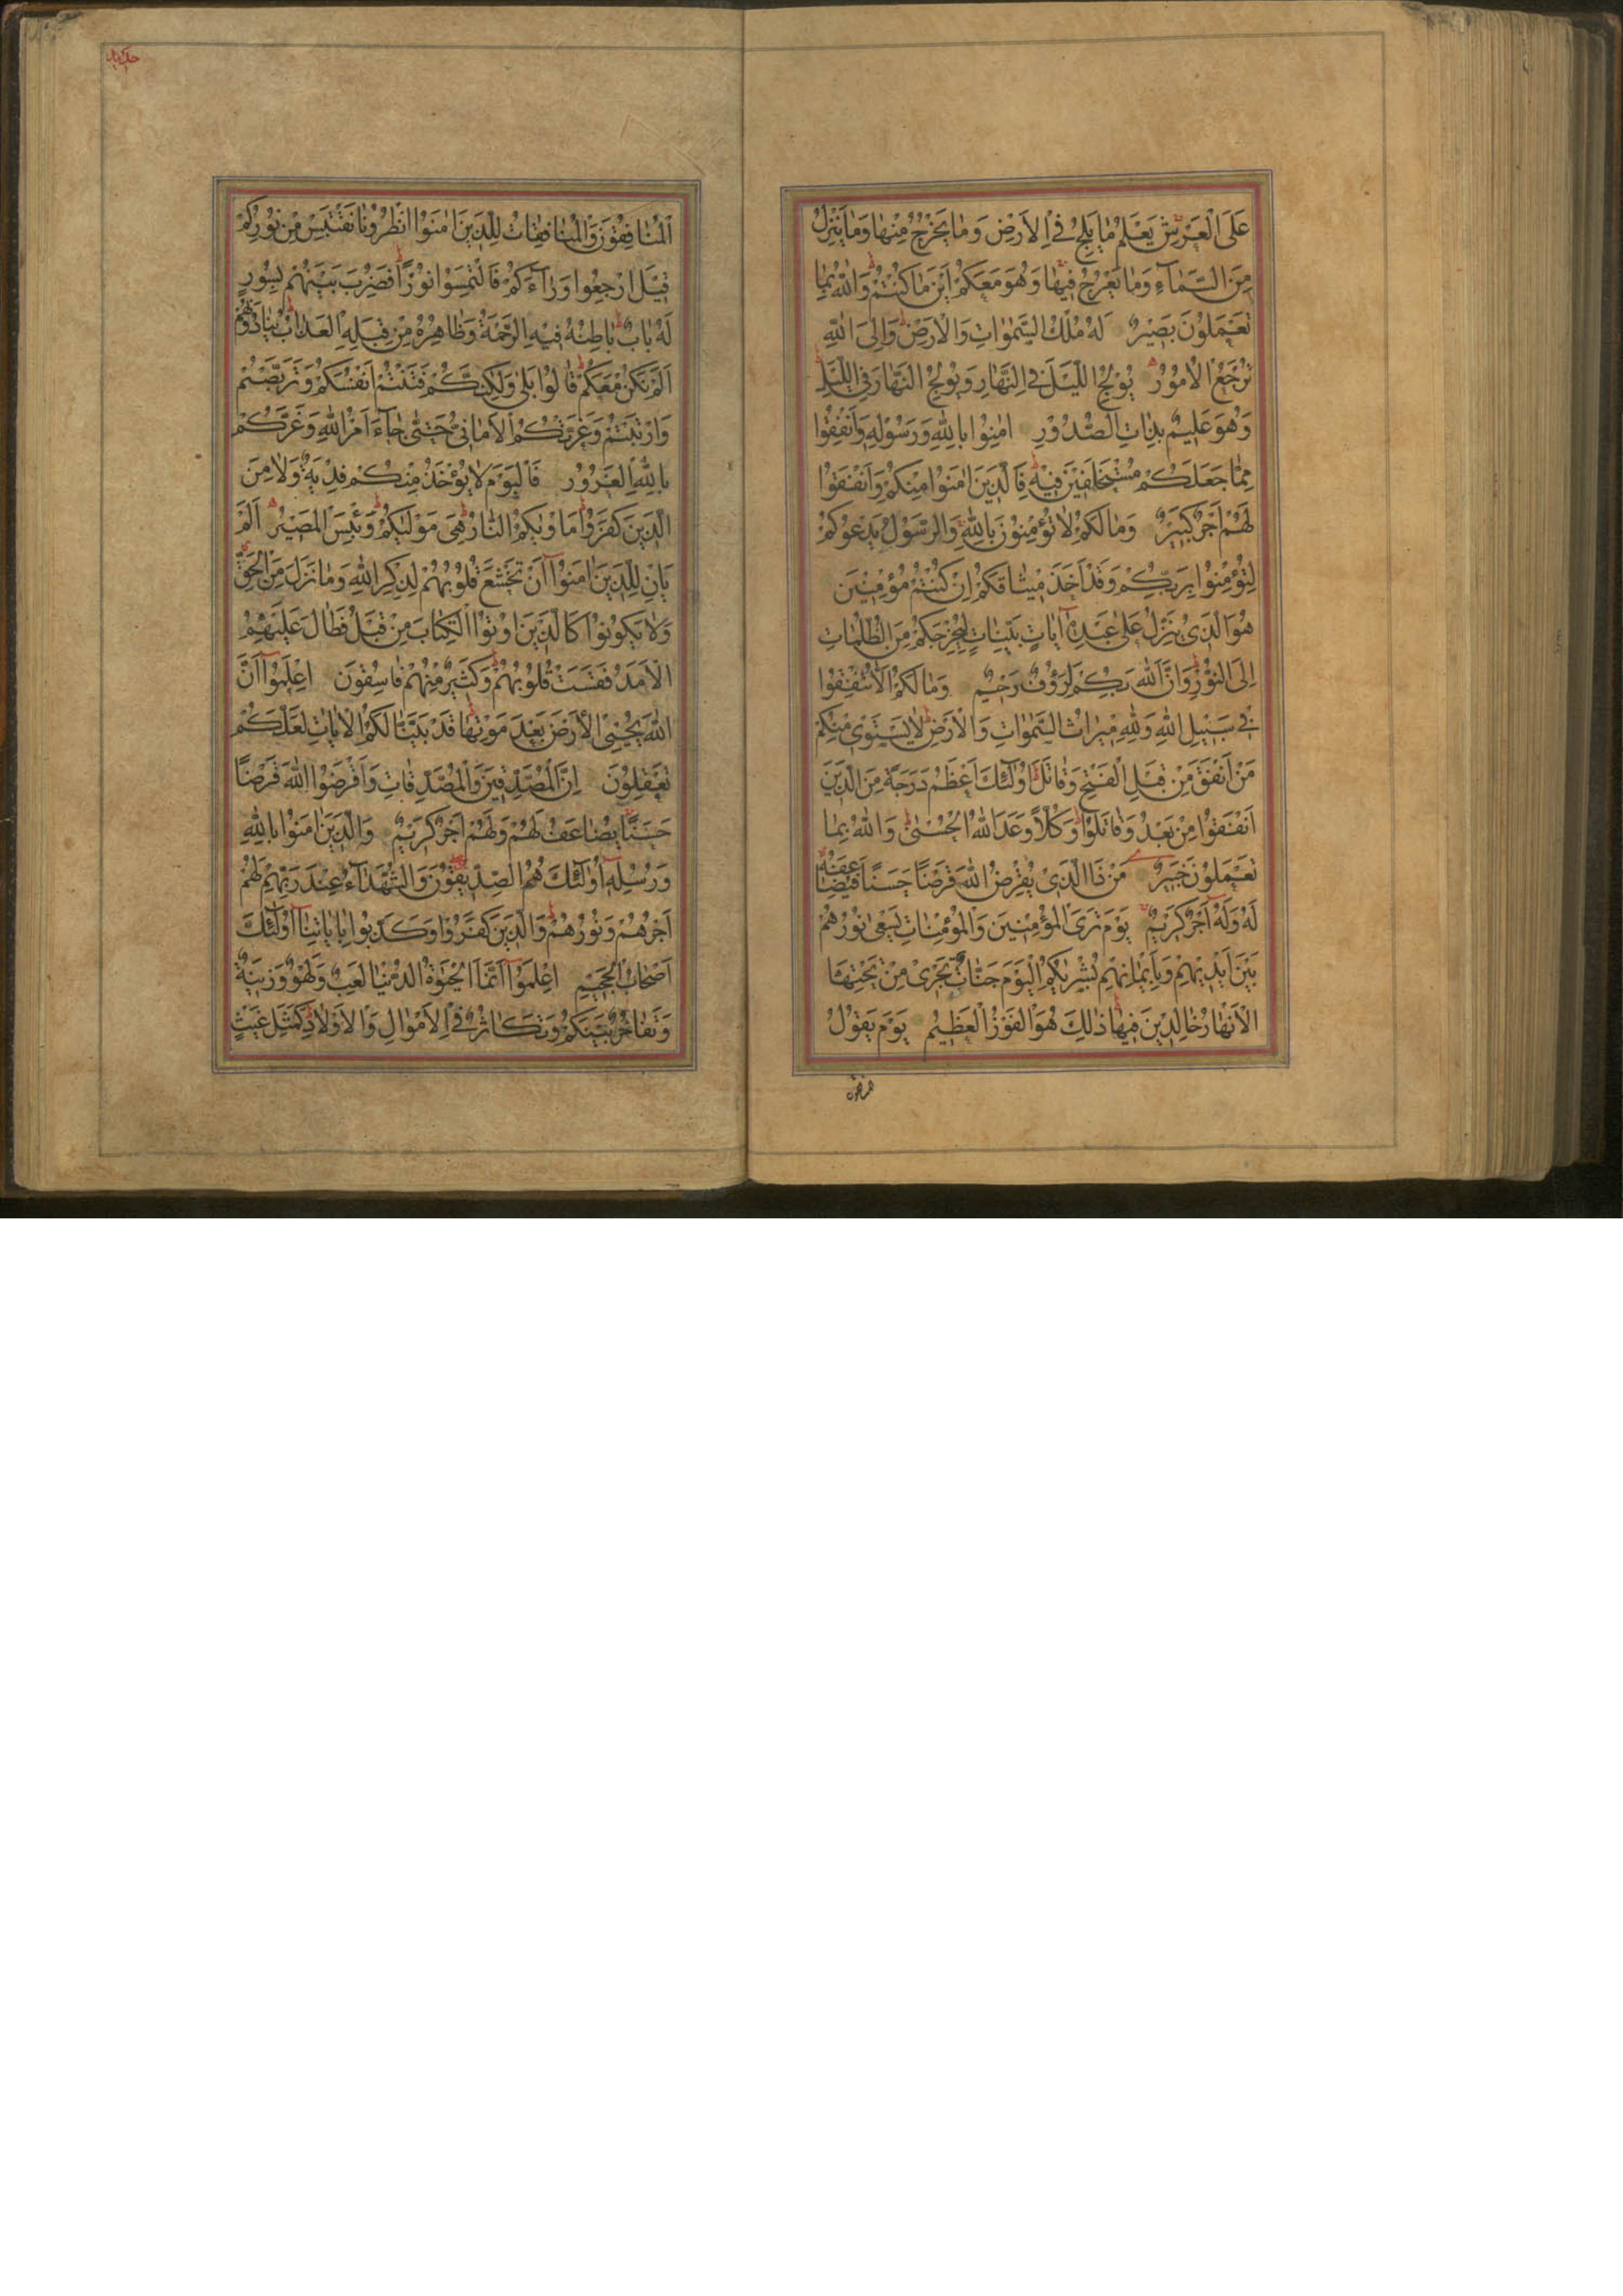 عَلَى الْعَرْشِ يَعْلَمُ مَا يَلِجُ فِي الْاَرْضِ وَمَا يَخْرُجُ مِنْهَا وَمَا يَنْزِلُ
مِنَ السَّمَآءِ وَمَا يَعْرُجُ فِيهَا وَهُوَ مَعَكُمْ اَيْنَ مَا كُنْتُمْ وَاللّٰهُ بِمَا
تَعْمَلُونَ بَصِيرٌ لَهُ مُلْكُ السَّمٰوَاتِ وَالْاَرْضِ وَاِلَى اللّٰهِ
تُرْجَعُ الْاُمُورُ يُولِجُ اللَّيْلَ فِي النَّهَارِ وَيُولِجُ النَّهَارَ فِي اللَّيْلِ
وَهُوَ عَلِيمٌ بِذَاتِ الصُّدُورِ اٰمِنُوا بِاللّٰهِ وَرَسُولِهِ وَاَنْفِقُوا
مِمَّا جَعَلَكُمْ مُسْتَخْلَفِينَ فِيهِ فَالَّذِينَ اٰمَنُوا مِنْكُمْ وَاَنْفَقُوا
لَهُمْ اَجْرٌ كَبِيرٌ وَمَا لَكُمْ لَا تُؤْمِنُونَ بِاللّٰهِ وَالرَّسُولُ يَدْعُوكُمْ
لِتُؤْمِنُوا بِرَبِّكُمْ وَقَدْ اَخَذَ مِيثَاقَكُمْ اِنْ كُنْتُمْ مُؤْمِنِينَ
هُوَ الَّذِي يُنَزِّلُ عَلٰى عَبْدِهِ آيَاتٍ بَيِّنَاتٍ لِيُخْرِجَكُمْ مِنَ الظُّلُمَاتِ
اِلَى النُّورِ وَاِنَّ اللّٰهَ بِكُمْ لَرَؤُفٌ رَحِيمٌ وَمَا لَكُمْ اَلَّا تُنْفِقُوا
فِي سَبِيلِ اللّٰهِ وَلِلّٰهِ مِيرَاثُ السَّمٰوَاتِ وَالْاَرْضِ لَا يَسْتَوِي مِنْكُمْ
مَنْ اَنْفَقَ مِنْ قَبْلِ الْفَتْحِ وَقَاتَلَ اُولٰٓئِكَ اَعْظَمُ دَرَجَةً مِنَ الَّذِينَ
اَنْفَقُوا مِنْ بَعْدُ وَقَاتَلُوا وَكُلًّا وَعَدَ اللّٰهُ الْحُسْنٰى وَاللّٰهُ بِمَا
تَعْمَلُونَ خَبِيرٌ مَنْ ذَا الَّذِي يُقْرِضُ اللّٰهَ قَرْضًا حَسَنًا فَيُضَاعِفَهُ
لَهُ وَلَهُ اَجْرٌ كَرِيمٌ يَوْمَ تَرَى الْمُؤْمِنِينَ وَالْمُؤْمِنَاتِ يَسْعٰى نُورُهُمْ
بَيْنَ اَيْدِيهِمْ وَبِاَيْمَانِهِمْ بُشْرٰيكُمُ الْيَوْمَ جَنَّاتٌ تَجْرِي مِنْ تَحْتِهَا
الْاَنْهَارُ خَالِدِينَ فِيهَا ذٰلِكَ هُوَ الْفَوْزُ الْعَظِيمُ يَوْمَ يَقُولُ
حديد
الْمُنَافِقُونَ وَالْمُنَافِقَاتُ لِلَّذِينَ اٰمَنُوا انْظُرُونَا نَقْتَبِسْ مِنْ نُورِكُمْ
قِيلَ ارْجِعُوا وَرَآءَكُمْ فَالْتَمِسُوا نُورًا فَضُرِبَ بَيْنَهُمْ بِسُورٍ
لَهُ بَابٌ بَاطِنُهُ فِيهِ الرَّحْمَةُ وَظَاهِرُهُ مِنْ قِبَلِهِ الْعَذَابُ يُنَادُونَهُمْ
اَلَمْ نَكُنْ مَعَكُمْ قَالُوا بَلٰى وَلٰكِنَّكُمْ فَتَنْتُمْ اَنْفُسَكُمْ وَتَرَبَّصْتُمْ
وَارْتَبْتُمْ وَغَرَّتْكُمُ الْاَمَانِيُّ حَتّٰى جَآءَ اَمْرُ اللّٰهِ وَغَرَّكُمْ
بِاللّٰهِ الْغَرُورُ فَالْيَوْمَ لَا يُؤْخَذُ مِنْكُمْ فِدْيَةٌ وَلَا مِنَ
الَّذِينَ كَفَرُوا مَاْوٰيكُمُ النَّارُ هِيَ مَوْلٰيكُمْ وَبِئْسَ الْمَصِيرُ اَلَمْ
يَاْنِ لِلَّذِينَ اٰمَنُوا اَنْ تَخْشَعَ قُلُوبُهُمْ لِذِكْرِ اللّٰهِ وَمَا نَزَلَ مِنَ الْحَقِّ
وَلَا يَكُونُوا كَالَّذِينَ اُوتُوا الْكِتَابَ مِنْ قَبْلُ فَطَالَ عَلَيْهِمُ
الْاَمَدُ فَقَسَتْ قُلُوبُهُمْ وَكَثِيرٌ مِنْهُمْ فَاسِقُونَ اِعْلَمُوا اَنَّ
اللّٰهَ يُحْيِي الْاَرْضَ بَعْدَ مَوْتِهَا قَدْ بَيَّنَّا لَكُمُ الْاٰيَاتِ لَعَلَّكُمْ
تَعْقِلُونَ اِنَّ الْمُصَّدِّقِينَ وَالْمُصَّدِّقَاتِ وَاَقْرَضُوا اللّٰهَ قَرْضًا
حَسَنًا يُضَاعَفُ لَهُمْ وَلَهُمْ اَجْرٌ كَرِيمٌ وَالَّذِينَ اٰمَنُوا بِاللّٰهِ
وَرُسُلِهِ اُولٰٓئِكَ هُمُ الصِّدِّيقُونَ وَالشُّهَدَآءُ عِنْدَ رَبِّهِمْ لَهُمْ
اَجْرُهُمْ وَنُورُهُمْ وَالَّذِينَ كَفَرُوا وَكَذَّبُوا بِاٰيَاتِنَا اُولٰٓئِكَ
اَصْحَابُ الْجَحِيمِ اِعْلَمُوا اَنَّمَا الْحَيٰوةُ الدُّنْيَا لَعِبٌ وَلَهْوٌ وَزِينَةٌ
وَتَفَاخُرٌ بَيْنَكُمْ وَتَكَاثُرٌ فِي الْاَمْوَالِ وَالْاَوْلَادِ كَمَثَلِ غَيْثٍ